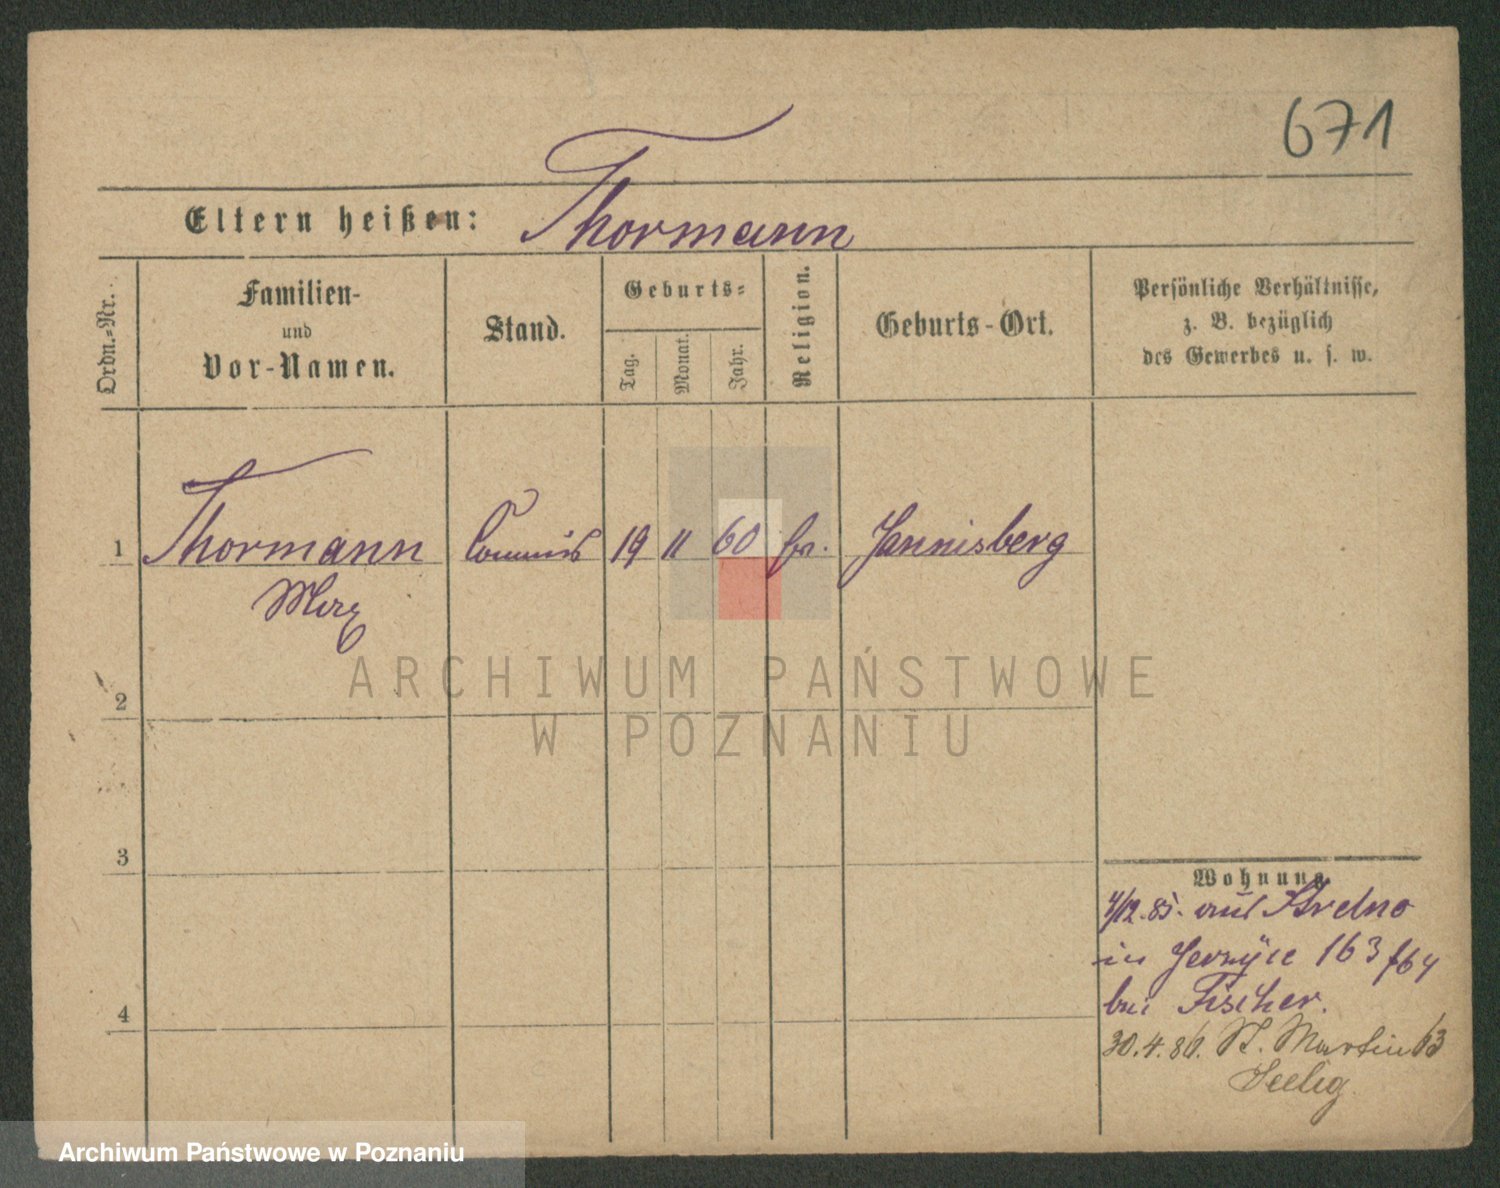 671
Eltern heißen: Thormann
Ordn.-Nr.
Familien-
und
Vor-Namen.
Stand.
Geburts-
Tag.
Monat.
Jahr.
Religion.
Geburts-Ort.
Persönliche Verhältnisse,
z. B. bezüglich
des Gewerbes u. s. w.
1 Thormann Commis 19 11 60 Jannisberg
Max
2
3
4
Wohnung
4/12.85. aus
in Jerzyce 163/64
bei Fischer.
30.4.86. St. Martin 63
Seelig
ARCHIWUM PAŃSTWOWE
W POZNANIU
Archiwum Państwowe w Poznaniu